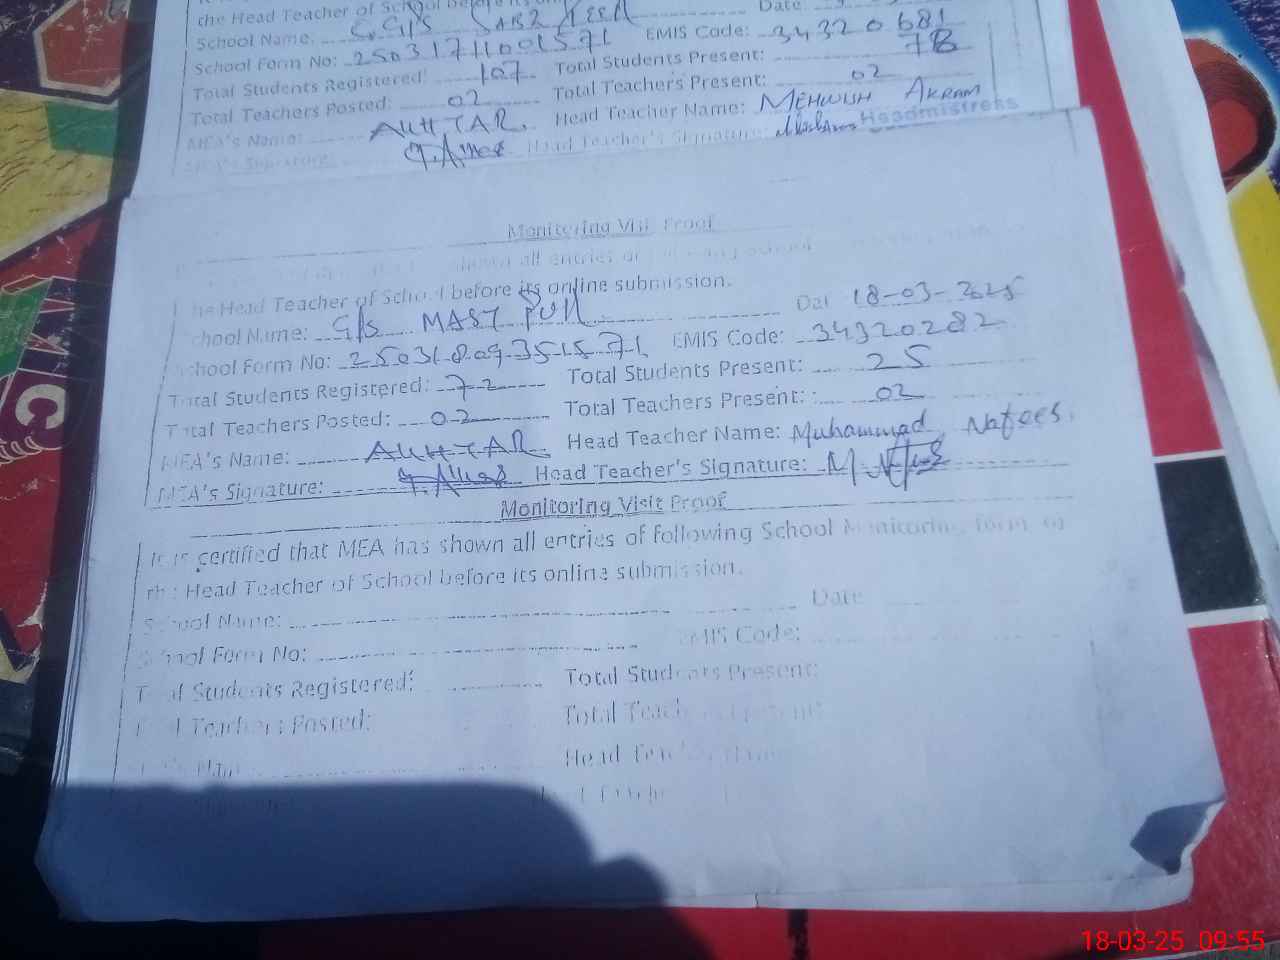 the Head Teacher of School before its
School Name: G.G/S SABZ Date
School Form No: 25031711001571 EMIS Code: 34320681
Total Students Registered: 107 Total Students Present: 78
Total Teachers Posted: 02 Total Teachers Present: 02
MEA's Name: AKHTAR. Head Teacher Name: MEHWISH AKRAM
MEA's Signature: Head Teacher's Signature: Headmistress
Monitoring Visit Proof
shown all entries of
the Head Teacher of School before its online submission.
School Name: G/S MAST Dat 18-03-2025
School Form No: 25031809351571 EMIS Code: 34320282
Total Students Registered: 72 Total Students Present: 25
Total Teachers Posted: 02 Total Teachers Present: 02
MEA's Name: AKHTAR. Head Teacher Name: Muhammad Nafees.
MEA's Signature: Head Teacher's Signature:
Monitoring Visit Proof
It is certified that MEA has shown all entries of following School Monitoring form to
the Head Teacher of School before its online submission.
School Name: Date
School Form No: EMIS Code:
Total Students Registered: Total Students Present:
Total Teachers Posted: Total Teachers Present:
Head Teacher Name
18-03-25 09:55